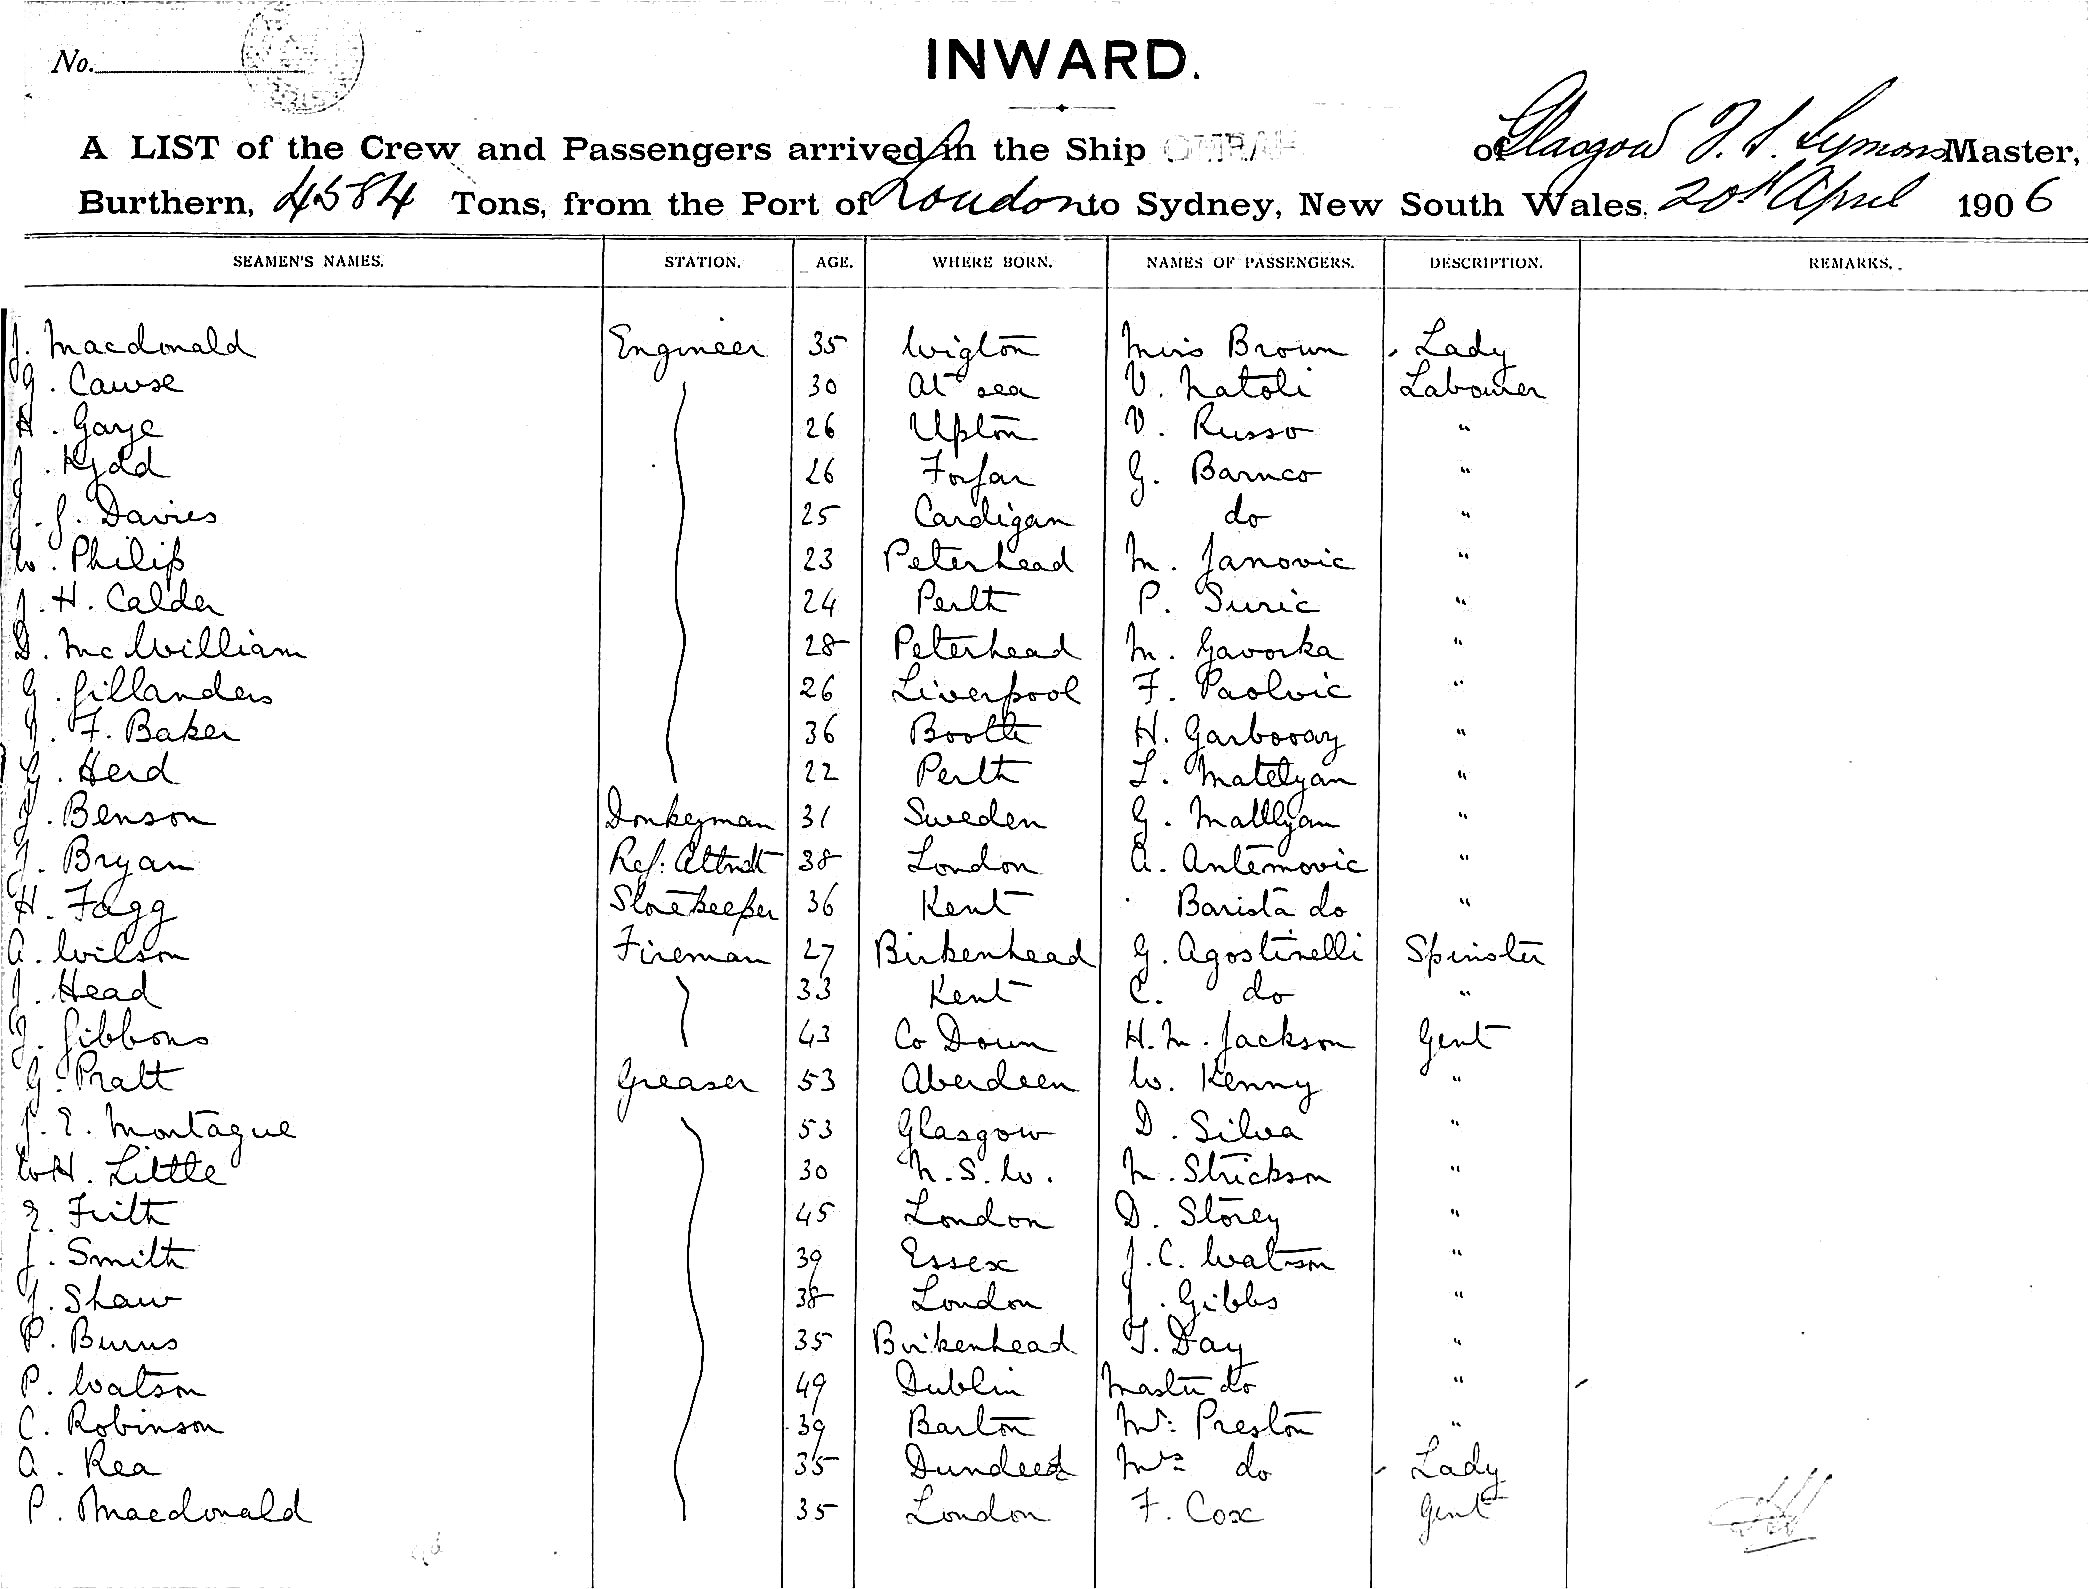 No.
INWARD.
A LIST of the Crew and Passengers arrived in the Ship OMRAH of Glasgow J. S. Symons Master,
Burthern, 4584 Tons, from the Port of London to Sydney, New South Wales, 20th April 1906
SEAMEN'S NAMES. STATION. AGE. WHERE BORN. NAMES OF PASSENGERS. DESCRIPTION. REMARKS.
J. Macdonald Engineer 35 Wigton Miss Brown Lady
G. Cawse 30 At sea V. Natoli Labourer
H. Gaye 26 Upton V. Russo "
J. Kydd 26 Forfar G. Barnco "
J. J. Davies 25 Cardigan do "
W. Philip 23 Peterhead M. Janovic "
J. H. Calder 24 Perth P. Suric "
D. McWilliam 28 Peterhead M. Gavorka "
G. Gillanders 26 Liverpool F. Paolvic "
F. Baker 36 Bootle H. Garbovay "
G. Herd 22 Perth L. Matelyan "
J. Benson Donkeyman 31 Sweden G. Matelyan "
J. Bryan Ref: Attndt 38 London A. Antemovic "
H. Fagg Storekeeper 36 Kent Barista do "
A. Wilson Fireman 27 Birkenhead G. Agostinelli Spinster
J. Head 33 Kent C. do "
J. Gibbons 43 Co Down H. M. Jackson Gent
G. Pratt Greaser 53 Aberdeen W. Kenny "
J. E. Montague 53 Glasgow D. Silva "
W H. Little 30 N. S. W. M. Strickson "
E. Frith 45 London D. Storey "
J. Smith 39 Essex J. C. Watson "
J. Shaw 38 London J. Gibbs "
P. Burns 35 Birkenhead T. Day "
P. Watson 49 Dublin Master do "
C. Robinson 39 Barton Mr. Preston "
A. Rea 35 Dundee Mrs do Lady
P. Macdonald 35 London F. Cox Gent